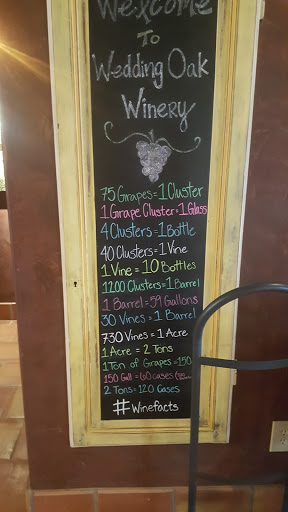 Welcome
To
Wedding Oak
Winery
75 Grapes = 1 Cluster
1 Grape Cluster = 1 Glass
4 Clusters = 1 Bottle
40 Clusters = 1 Vine
1 Vine = 10 Bottles
1200 Clusters = 1 Barrel
1 Barrel = 59 Gallons
30 Vines = 1 Barrel
730 Vines = 1 Acre
1 Acre = 2 Tons
1 Ton of Grapes = 150
150 Gall = 60 cases
2 Tons = 120 Cases
#Winefacts